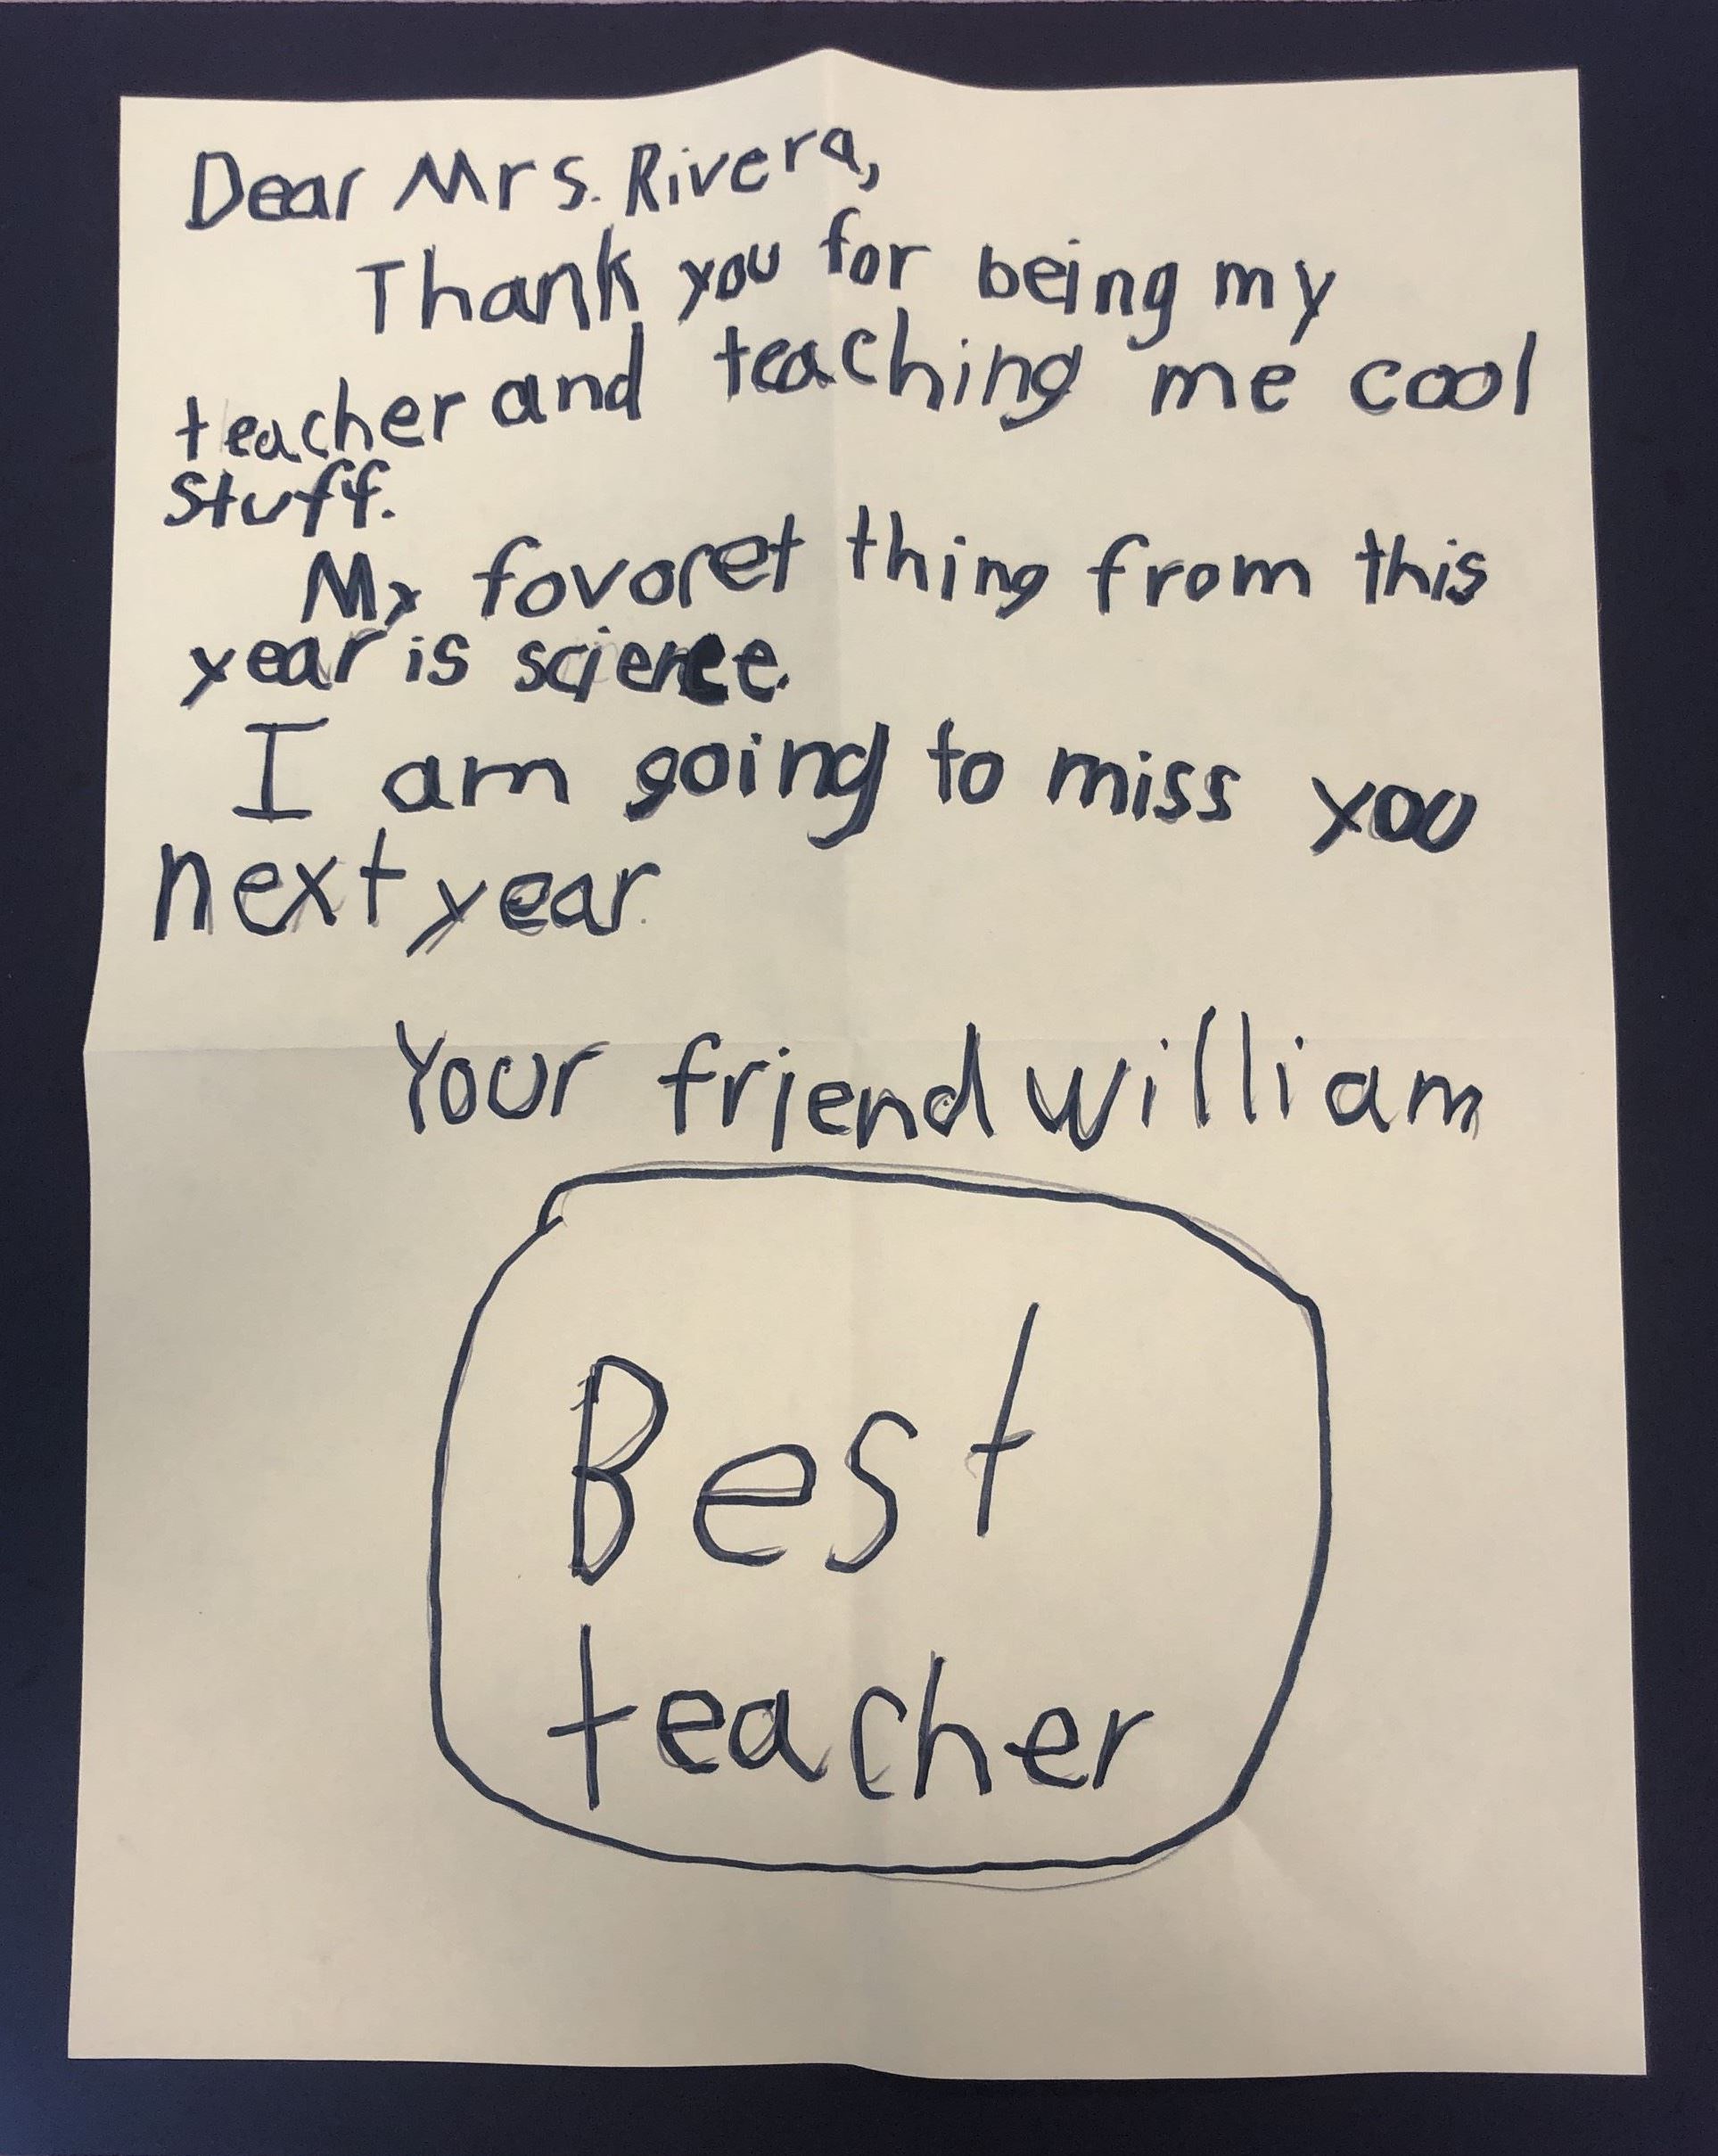 Dear Mrs. Rivera,
Thank you for being my
teacher and teaching me cool
stuff.
My favoret thing from this
year is science.
I am going to miss you
next year.
Your friend william
Best
teacher